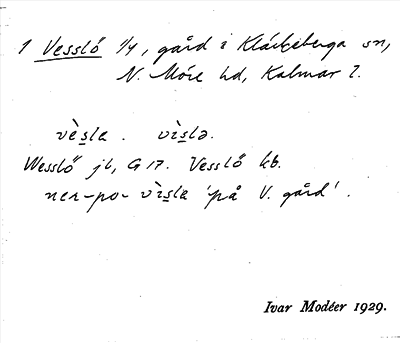 1 Vesslö 1/4, gård i Kläckeberga sn,
N. Möre hd, Kalmar l.
vèsla. vìslə.
Wesslö jb, G 17. Vesslö kb.
ner-po- vìsla 'på V. gård'.
Ivar Modéer 1929.